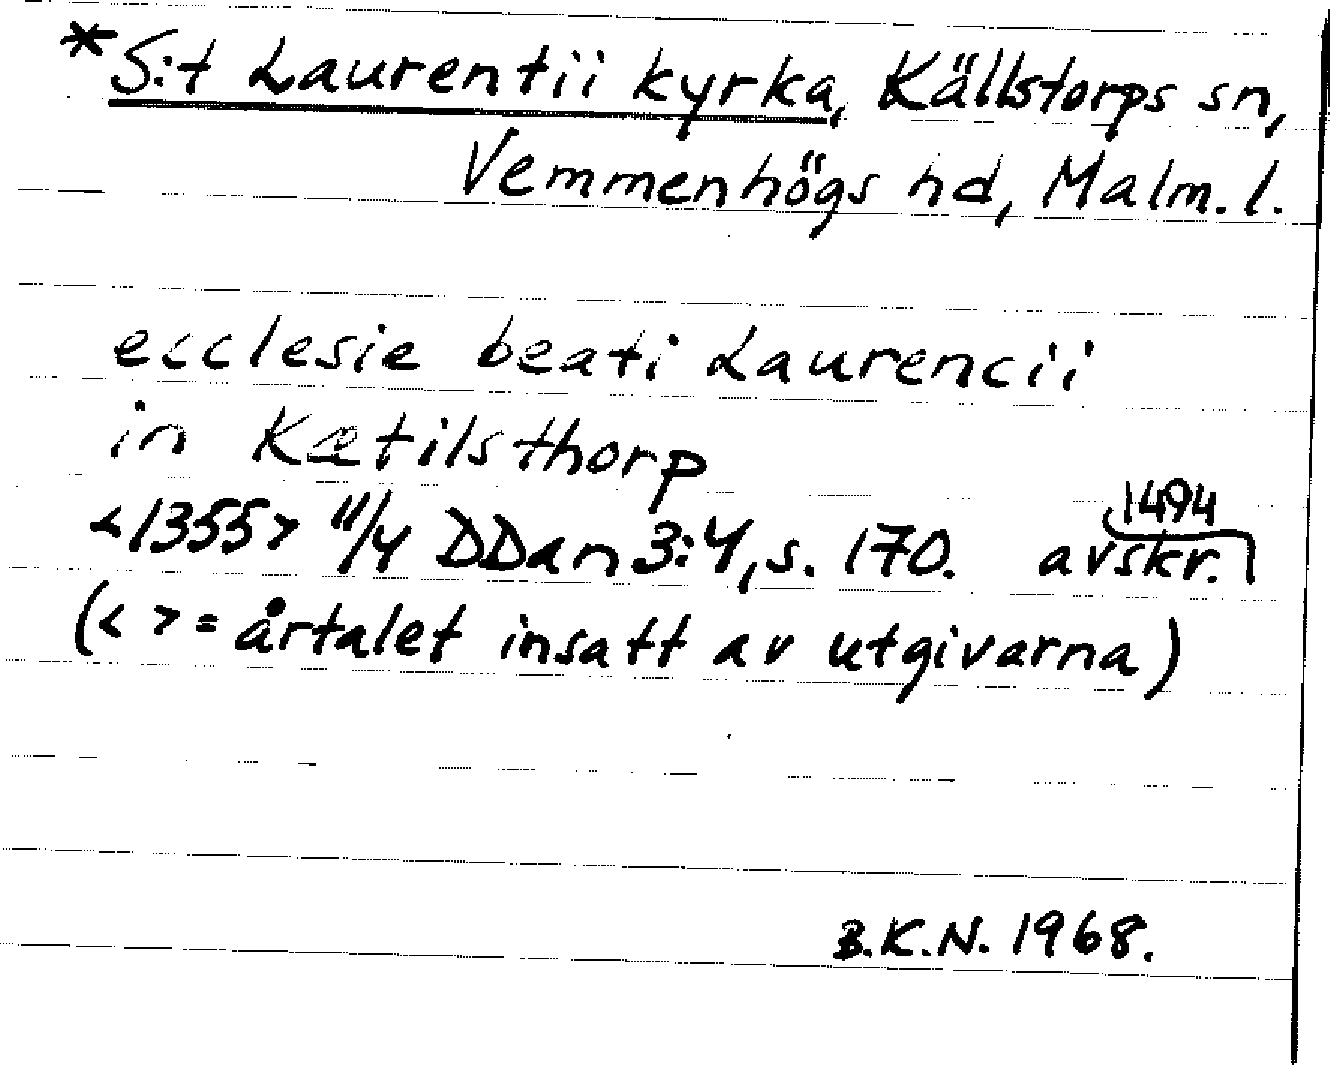 *S:t Laurentii kyrka, Källstorps sn,
Vemmenhögs hd, Malm. l.
ecclesie beati Laurencii
in Kætilsthorp
<1355> 11/4 DDan 3:4, s. 170. avskr. 1494
(< > = årtalet insatt av utgivarna)
B.K.N. 1968.